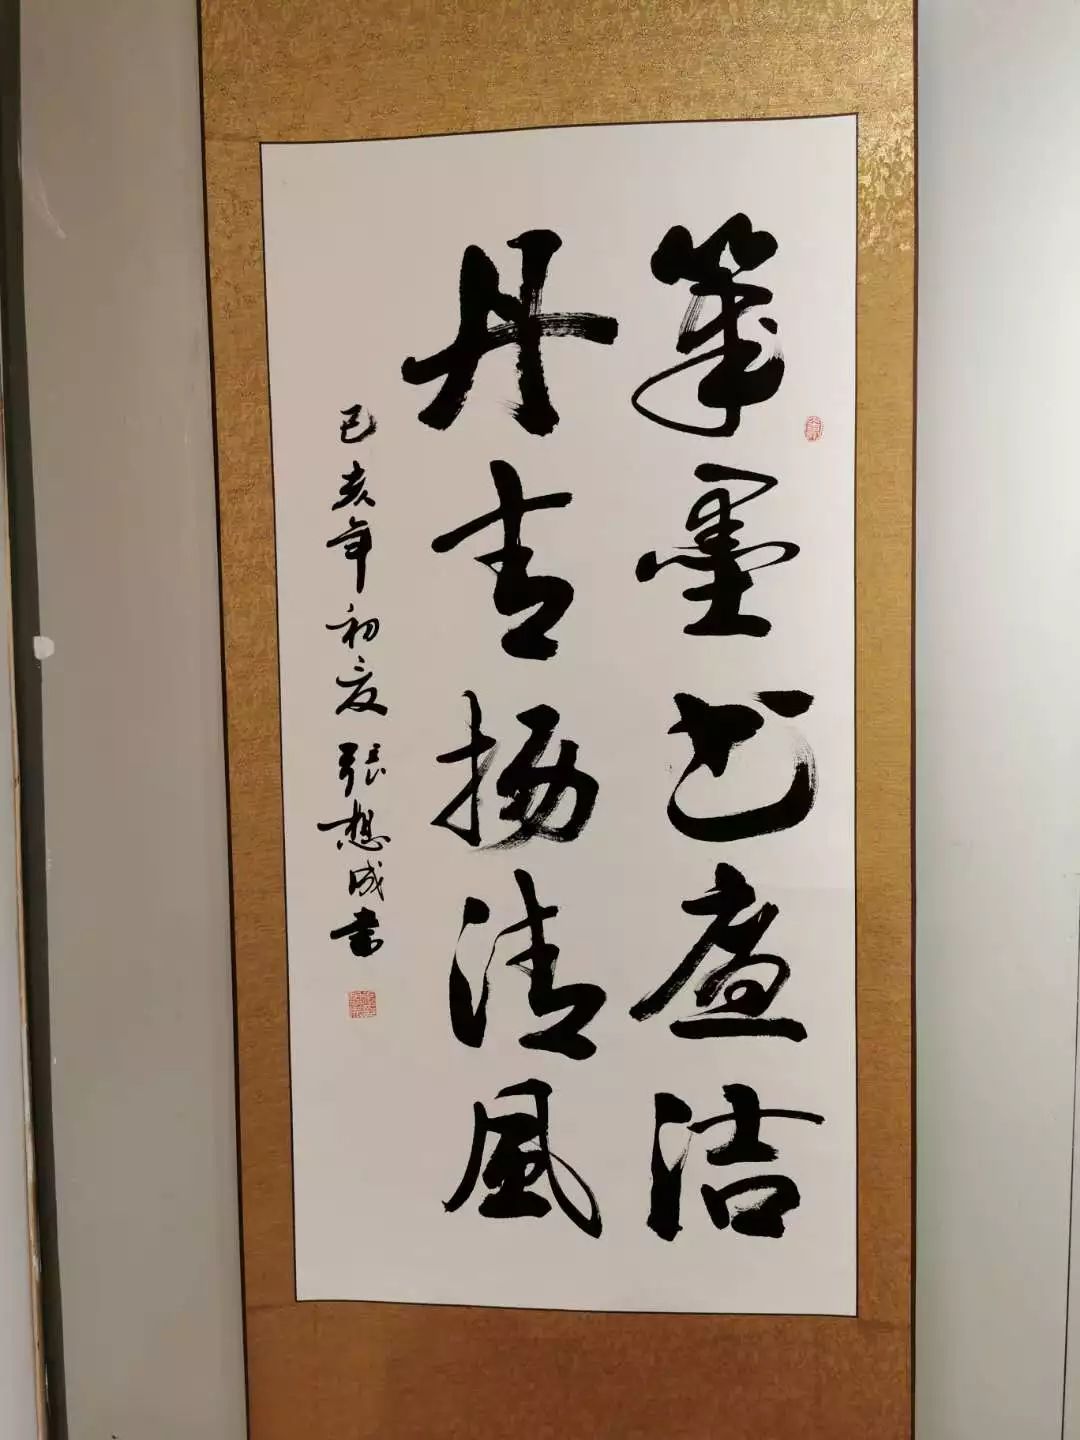 筆墨书廉洁
丹青揚清風
己亥年初夏張想成書